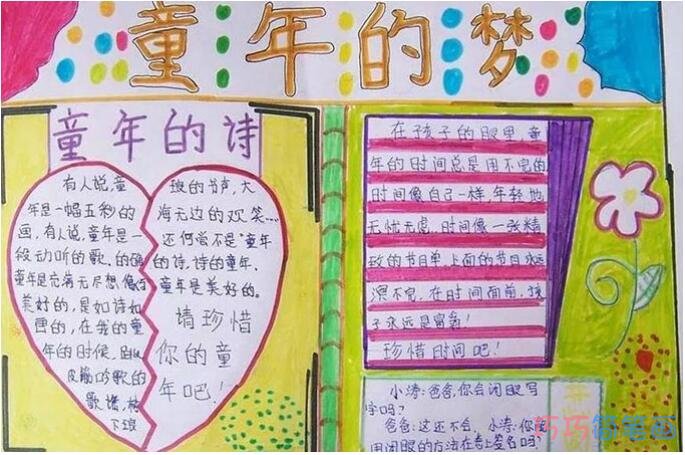 童年的梦
童年的诗
有人说,童
年是一幅五彩的
画,有人说,童年是一
段动听的歌,的确
童年是充满无尽想像的
美好的,是如诗如
画的,在我的童
年的时候,
皮筋吟歌的
歌谣,树
下琅
琅的书声,大
海无边的欢笑……
还何尝不是"童年
的诗,诗的童年,
童年是美好的。
请珍惜
你的童
年吧!
在孩子的眼里,童
年的时间总是用不完的
时间像自己一样,年轻地
无忧无虑,时间像一张精
致的节目单,上面的节目永远
演不完,在时间面前,孩
子永远是富翁!
珍惜时间吧!
小涛:爸爸,你会闭眼写
字吗?
爸爸:这还不会,小涛:你能
用闭眼的方法在卷上签名吗?
巧巧简笔画